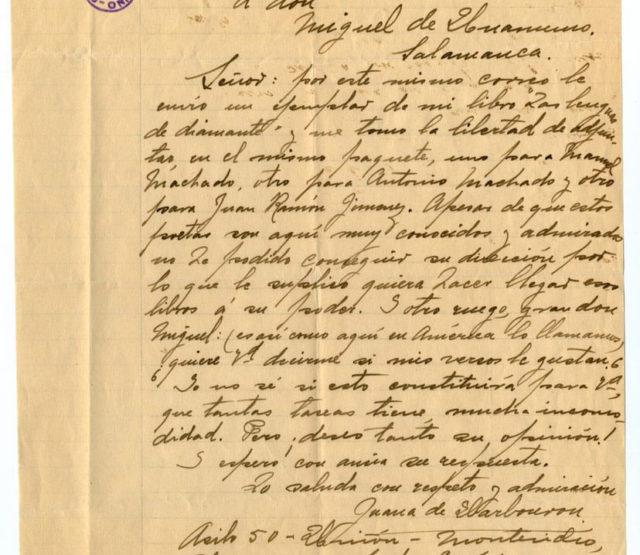 A don
Miguel de Unamuno.
Salamanca.
Señor: por este mismo correo le
envío un ejemplar de mi libro "Las lenguas
de diamante" y me tomo la libertad de adjun-
tar, en el mismo paquete, uno para Manuel
Machado, otro para Antonio Machado y otro
para Juan Ramón Jimenez. Apesar de que estos
poetas son aquí muy conocidos y admirados
no he podido conseguir su dirección por
lo que le suplico quiera hacer llegar esos
libros á su poder. I otro ruego, gran don
Miguel: (es así como aquí en América lo llamamos)
¿quiere Vd. decirme si mis versos le gustan?
Io no sé si esto constituirá para Vd.,
que tantas tareas tiene, mucha incomo-
didad. Pero ¡deseo tanto su opinión!
I espero con ansia su respuesta.
Lo saluda con respeto y admiración
Juana de Ibarbourou.
Asilo 50 - Unión - Montevideo